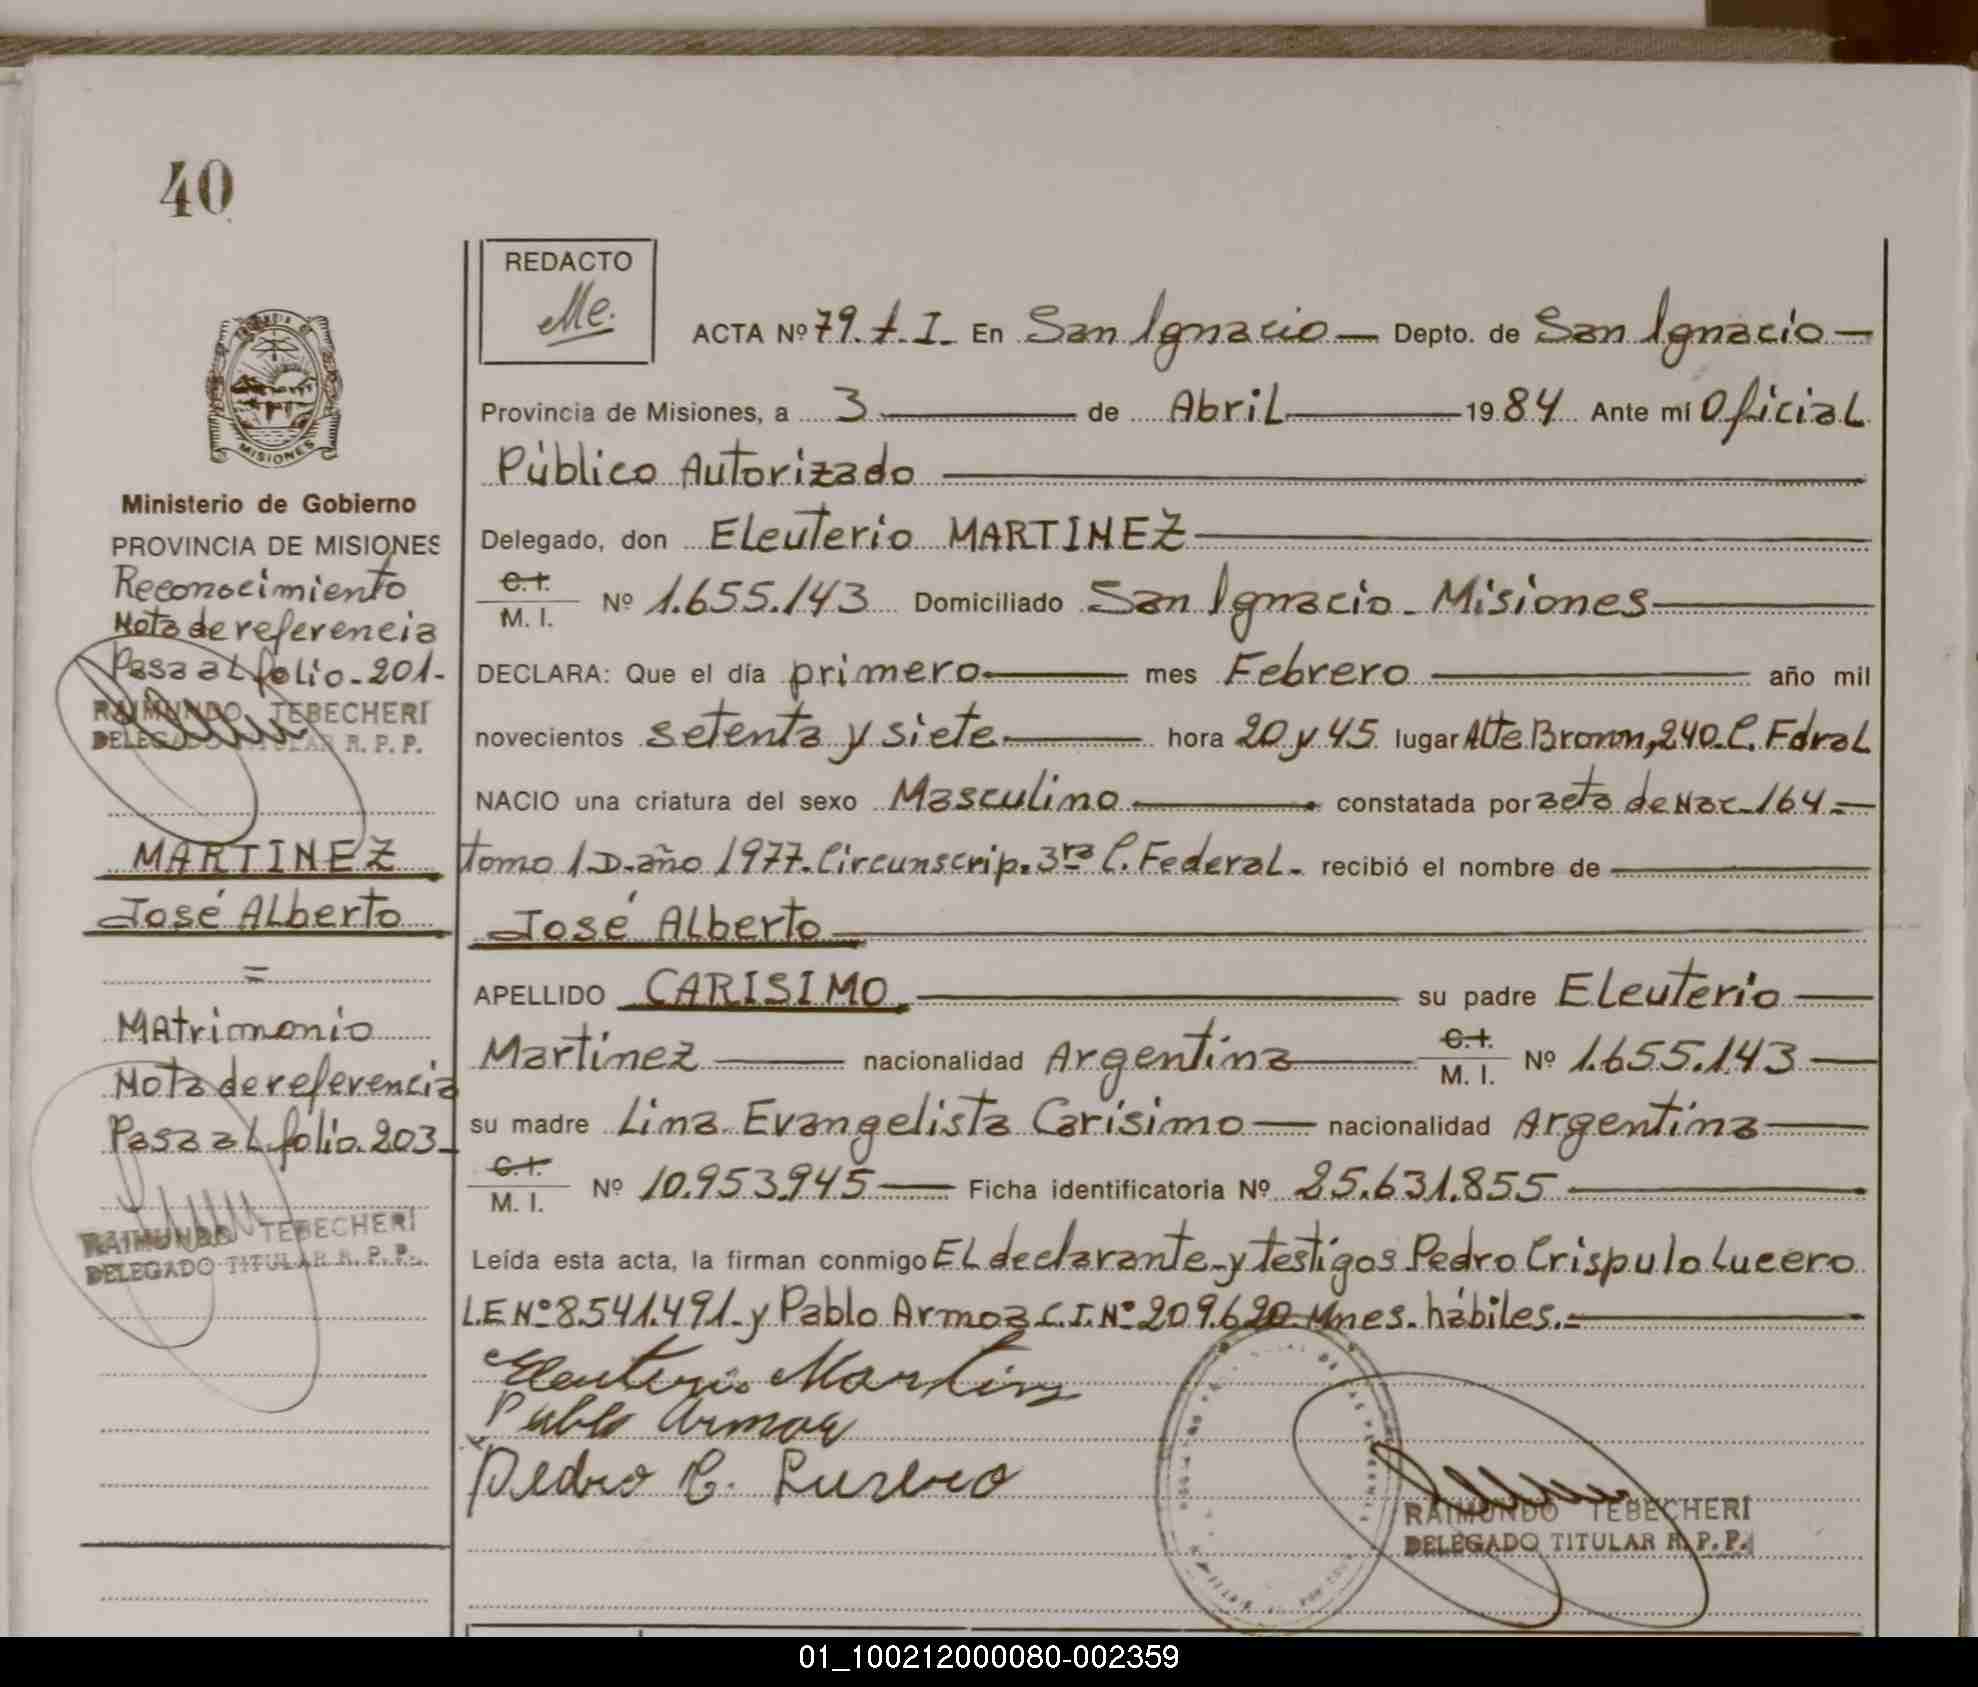 40
REDACTO
Me.
ACTA Nº 79.t.I. En San Ignacio — Depto. de San Ignacio —
Provincia de Misiones, a 3 de Abril 1984 Ante mí Oficial
Público Autorizado
Delegado, don Eleuterio MARTINEZ
C.I.
M. I. Nº 1.655.143 Domiciliado San Ignacio - Misiones
DECLARA: Que el día primero mes Febrero año mil
novecientos setenta y siete hora 20 y 45 lugar Alte Brown, 240 - C. Fdral
NACIO una criatura del sexo Masculino constatada por acta de Nac - 164 -
tomo 1 D - año 1977 - Circunscrip. 3ra C. Federal - recibió el nombre de
José Alberto
APELLIDO CARISIMO su padre Eleuterio
Martinez nacionalidad Argentina C.I. M. I. Nº 1.655.143
su madre Lina Evangelista Carísimo nacionalidad Argentina
C.I.
M. I. Nº 10.953.945 Ficha identificatoria Nº 25.631.855
Leída esta acta, la firman conmigo El declarante - y testigos Pedro Crispulo Lucero
L.E Nº 8.541.491 - y Pablo Armoa C.I. Nº 209.620 - Mnes. hábiles. =
Eleuterio Martinez
Pablo Armoa
Pedro C. Lucero
RAIMUNDO TEBECHERI
DELEGADO TITULAR R. P. P.
MISIONES
Ministerio de Gobierno
PROVINCIA DE MISIONES
Reconocimiento
Nota de referencia
Pasa al folio - 201 -
RAIMUNDO TEBECHERI
DELEGADO TITULAR R. P. P.
MARTINEZ
José Alberto
=
Matrimonio
Nota de referencia
Pasa al folio. 203 -
RAIMUNDO TEBECHERI
DELEGADO TITULAR R. P. P.
01_100212000080-002359